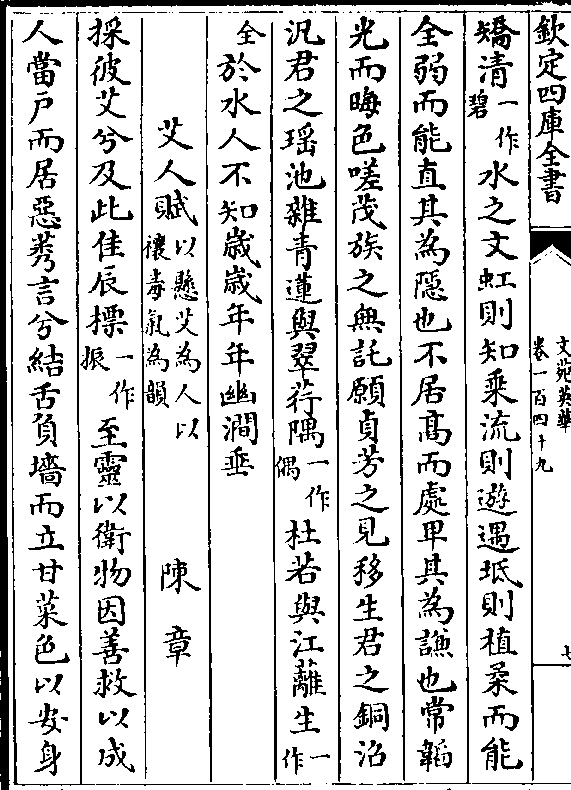 欽定四庫全書
文苑英華
卷一百四十九
七
矯清一作碧水之文虹則知乘流則遊遇坻則植柔而能
全弱而能直其為隱也不居髙而處卑其為謙也常韜
光而晦色嗟茂族之無託願貞芳之見移生君之銅沼
汎君之瑶池雜青蓮與翠荇隅一作偶杜若與江蘺生一作
全於水人不知嵗嵗年年幽澗垂
艾人賦以懸艾為人以禳毒氣為韻 陳章
採彼艾兮及此佳辰摽一作振至靈以衛物因善救以成
人當户而居惡莠言兮結舌負墻而立甘菜色以安身